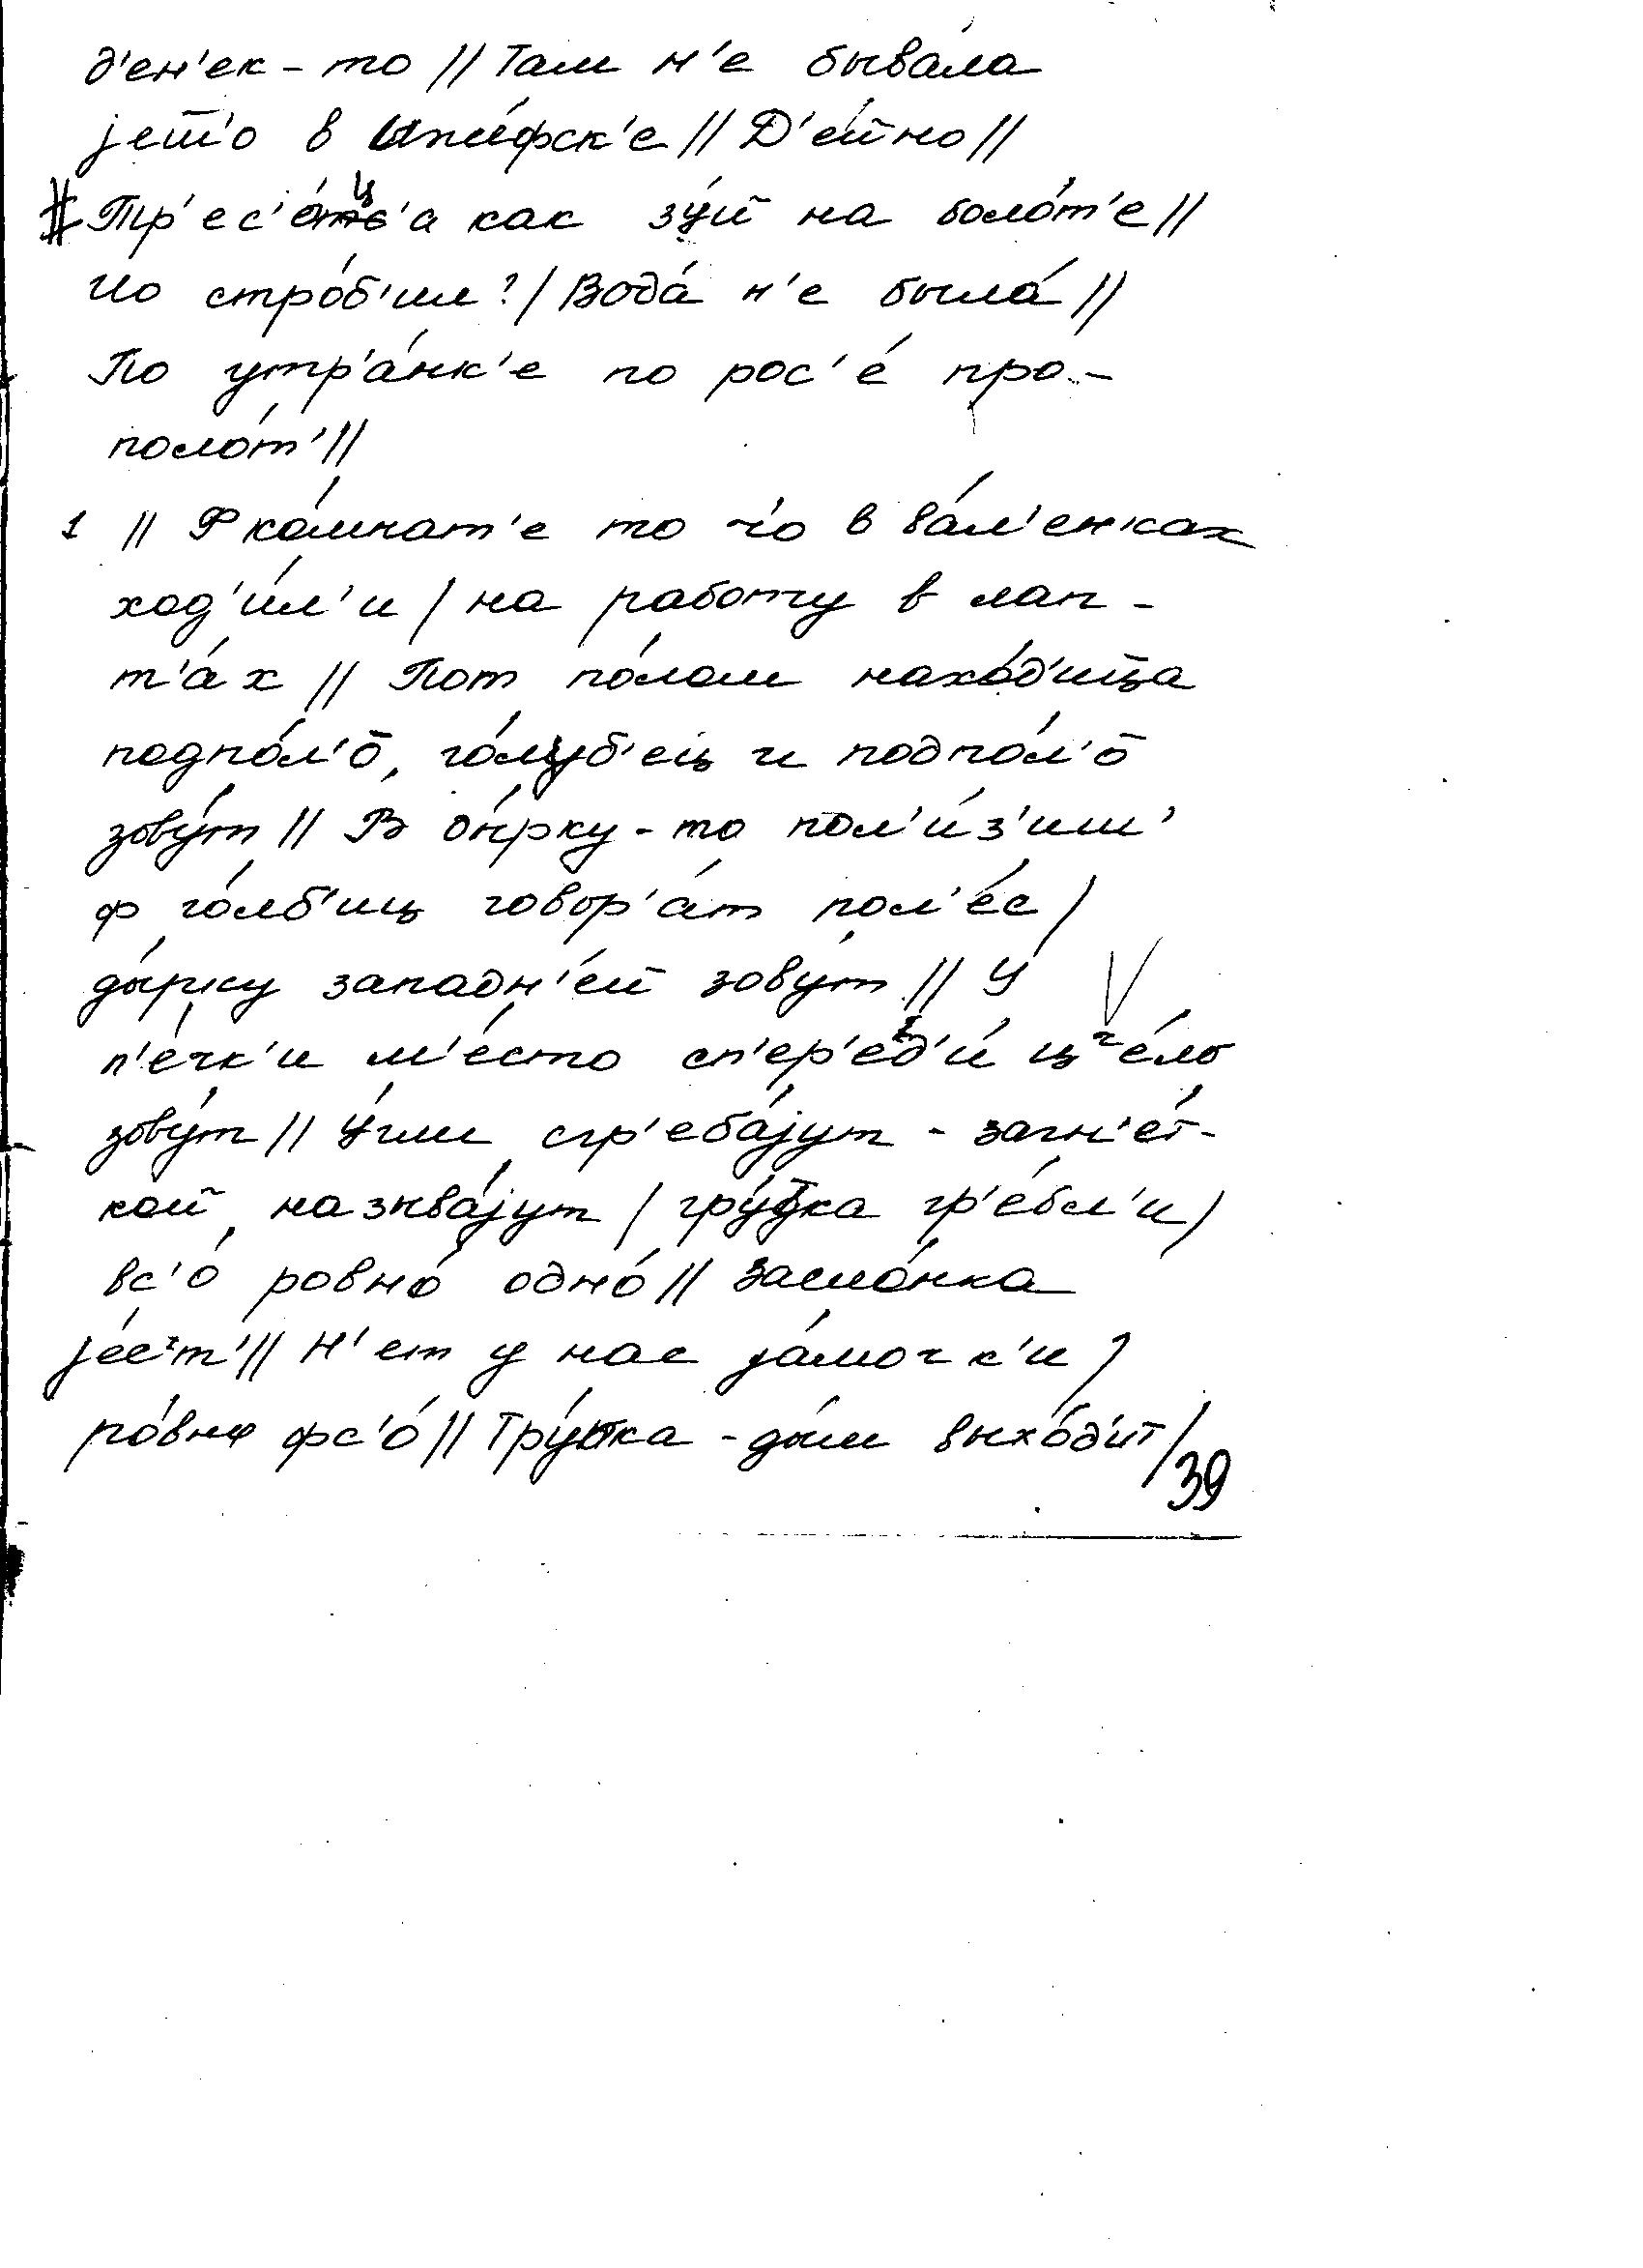 д'ен'ек-то // Там н'е быва́ла
jет'о в Ыже́фск'е // Д'е́йно //
Тр'ес'о́ц'а как зу́й на боло́т'е //
Чо стро́б'ил? / Вода́ н'е была́ //
По утр'а́нк'е по рос'е́ про-
поло́т' //
1 // Ф ко́мнат'е то чо в ва́л'енках
ход'и́л'и / на работу в лап-
т'а́х // Пот по́лом нахо́д'ица
подпо́л'о, го́луб'ец и подпо́л'о
зову́т // В ды́рку-то пол'и́з'иш'
ф го́лб'иц говор'а́т пол'е́с /
ды́рку западн'е́й зову́т // У
п'е́чк'и м'е́сто сп'ер'ед'и́ цᶣе́ло
зову́т // У́гли сгр'еба́jут - загн'е́т-
кой называ́jут / гру́тка гр'е́бл'и /
вс'о́ ровно́ одно́ // Засло́нка
jе́с'т' // Н'ет у нас jа́мочк'и /
ро́вно фс'о́ // Тру́пка - ды́м выхо́д'ит /
39